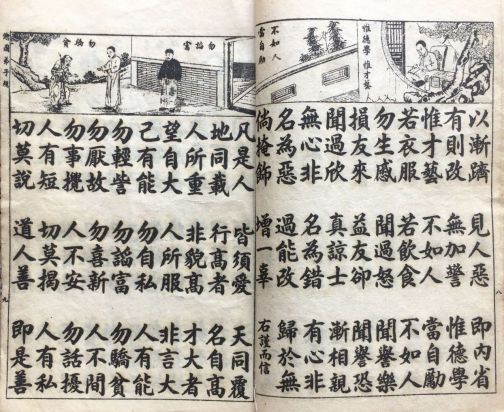 惟德學 惟才藝
不如人
當自勵
以漸躋 見人惡 即內省
有則改 無加警 惟德學
惟才藝 不如人 當自勵
若衣服 若飲食 不如人
勿生慼 聞過怒 聞譽樂
損友來 益友卻 聞譽恐
聞過欣 真諒士 漸相親
無心非 名為錯 有心非
名為惡 過能改 歸於無
倘掩飾 增一辜 右謹而信
八
勿諂富
勿驕貧
凡是人 皆須愛 天同覆
地同載 行髙者 名自髙
人所重 非貌髙 才大者
望自大 人所服 非言大
己有能 勿自私 人有能
勿輕訾 勿諂富 勿驕貧
勿厭故 勿喜新 人不閒
勿事攪 人不安 勿話擾
人有短 切莫揭 人有私
切莫說 道人善 即是善
繪圖弟子規
九